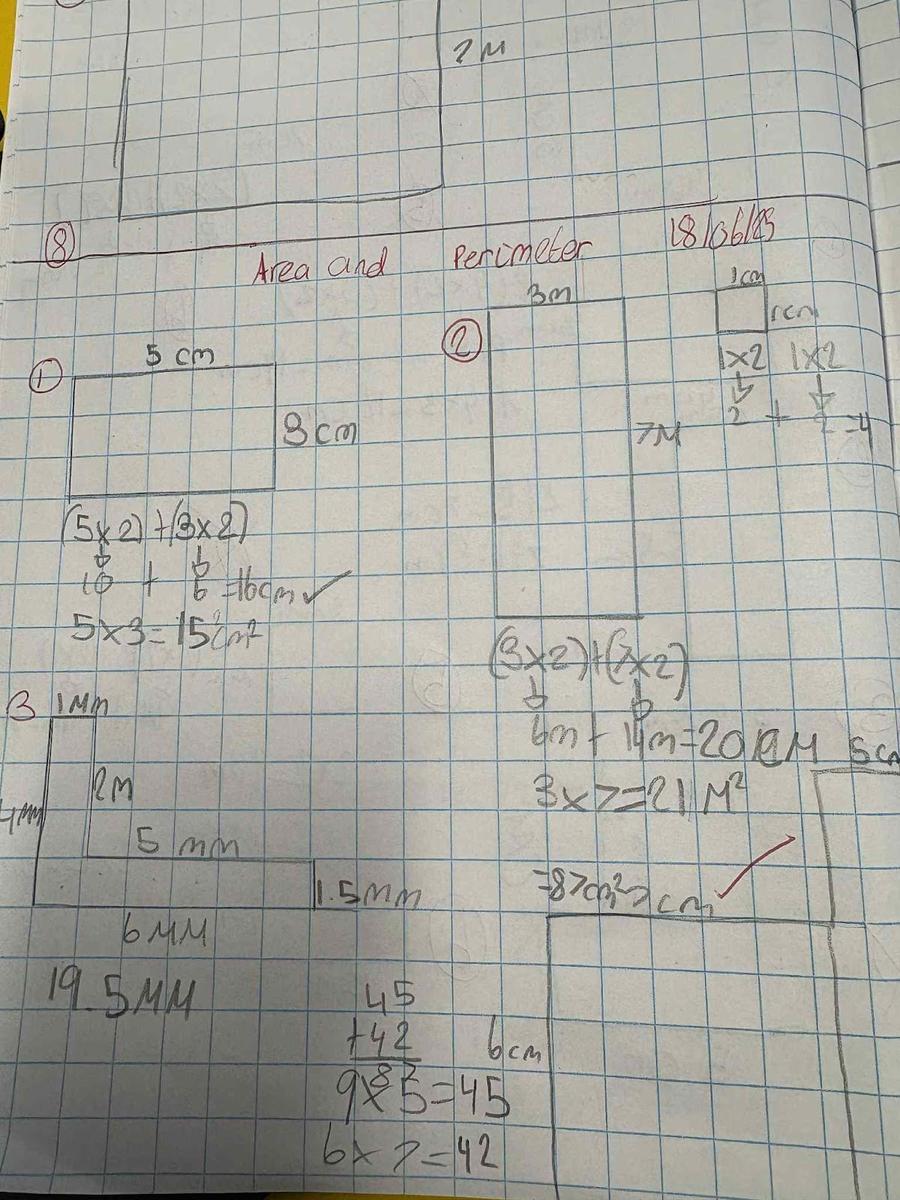 7M
8
Area and Perimeter 18/06/25
1
5 cm
3cm
(5x2)+(3x2)
10 + 6 =16cm ✓
5x3=15cm²
2
3m
7M
(3x2)+(7x2)
6m+ 14m=20 M
3x7=21M²
1cm
1cm
1x2 1x2
2 + 2 =4
3
1Mm
4mm
2m
5 mm
1.5mm
6MM
19.5MM
5cm
=87cm² 7cm ✓
6cm
45
+42
87
9x5=45
6x7=42